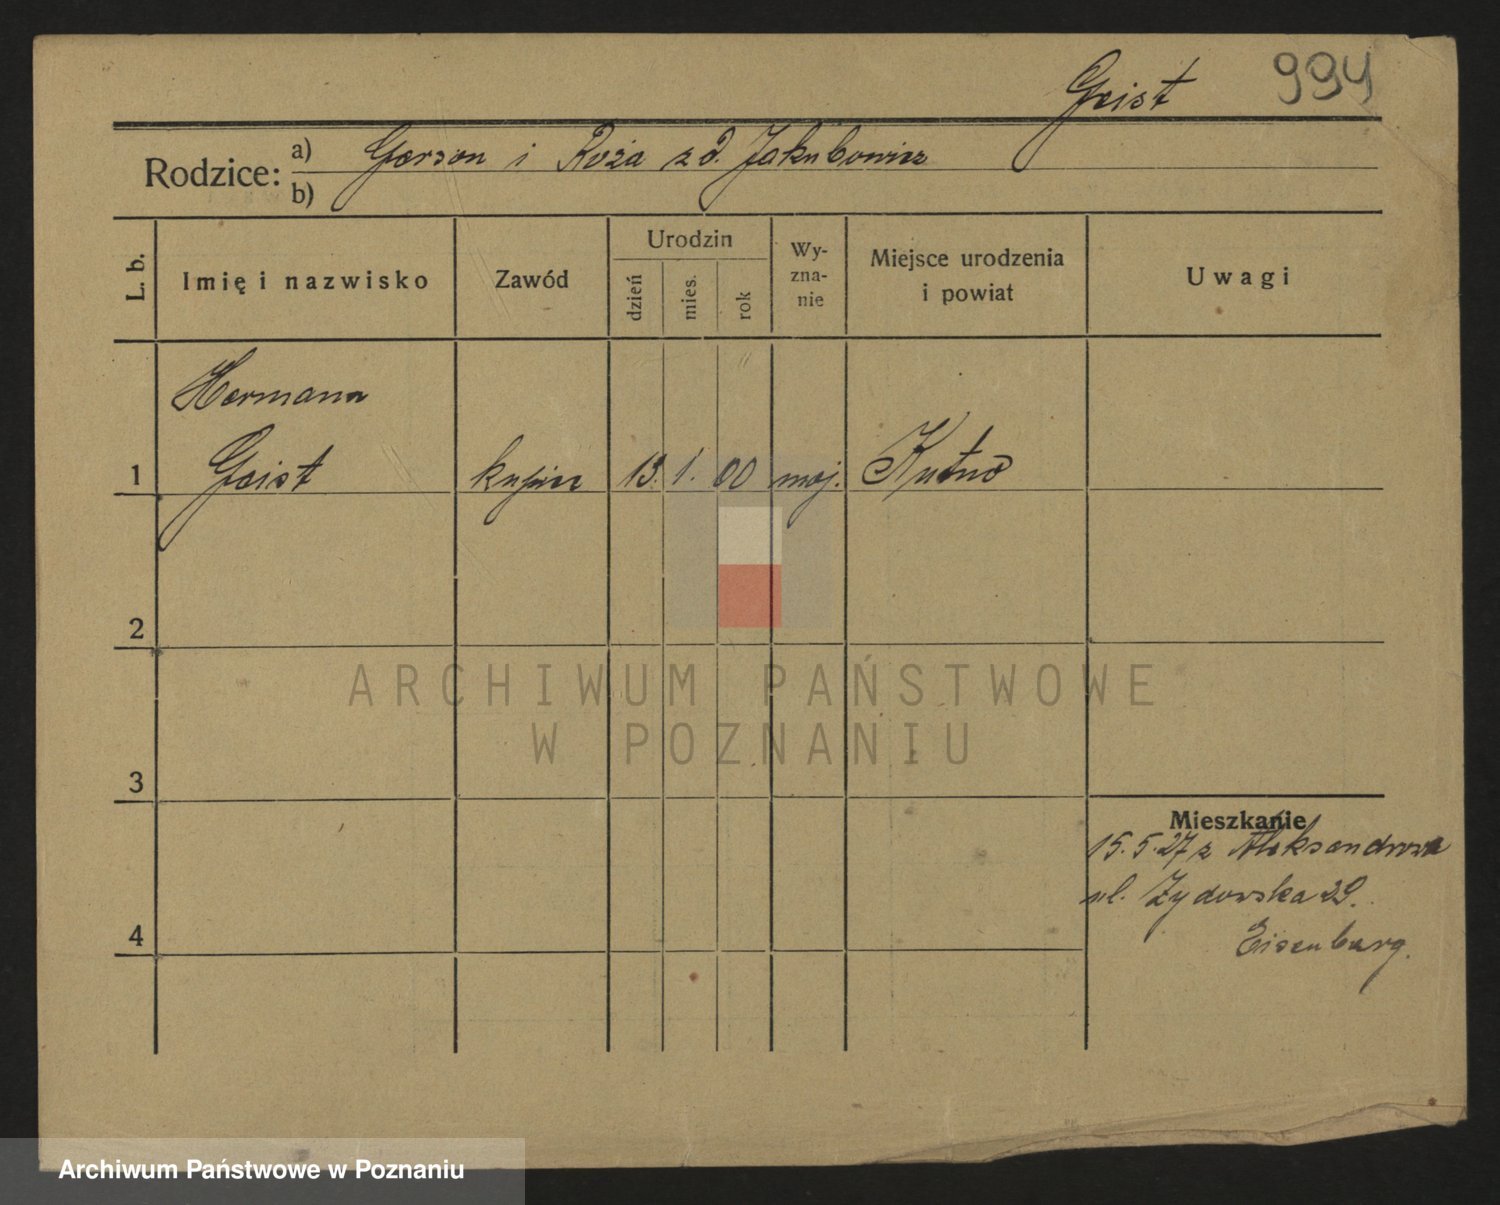 Geist 994
Rodzice: a) Gerson i Róża z d. Jakubowicz
b)
L. b. Imię i nazwisko Zawód Urodzin dzień mies. rok Wy-zna-nie Miejsce urodzenia i powiat Uwagi
Hermann
1 Geist kupiec 13. 1. 00 moj. Kutno
2
ARCHIWUM PAŃSTWOWE
W POZNANIU
3
Mieszkanie
15. 5. 27 z Aleksandrowa
ul. Żydowska 29.
4
Eisenburg.
Archiwum Państwowe w Poznaniu